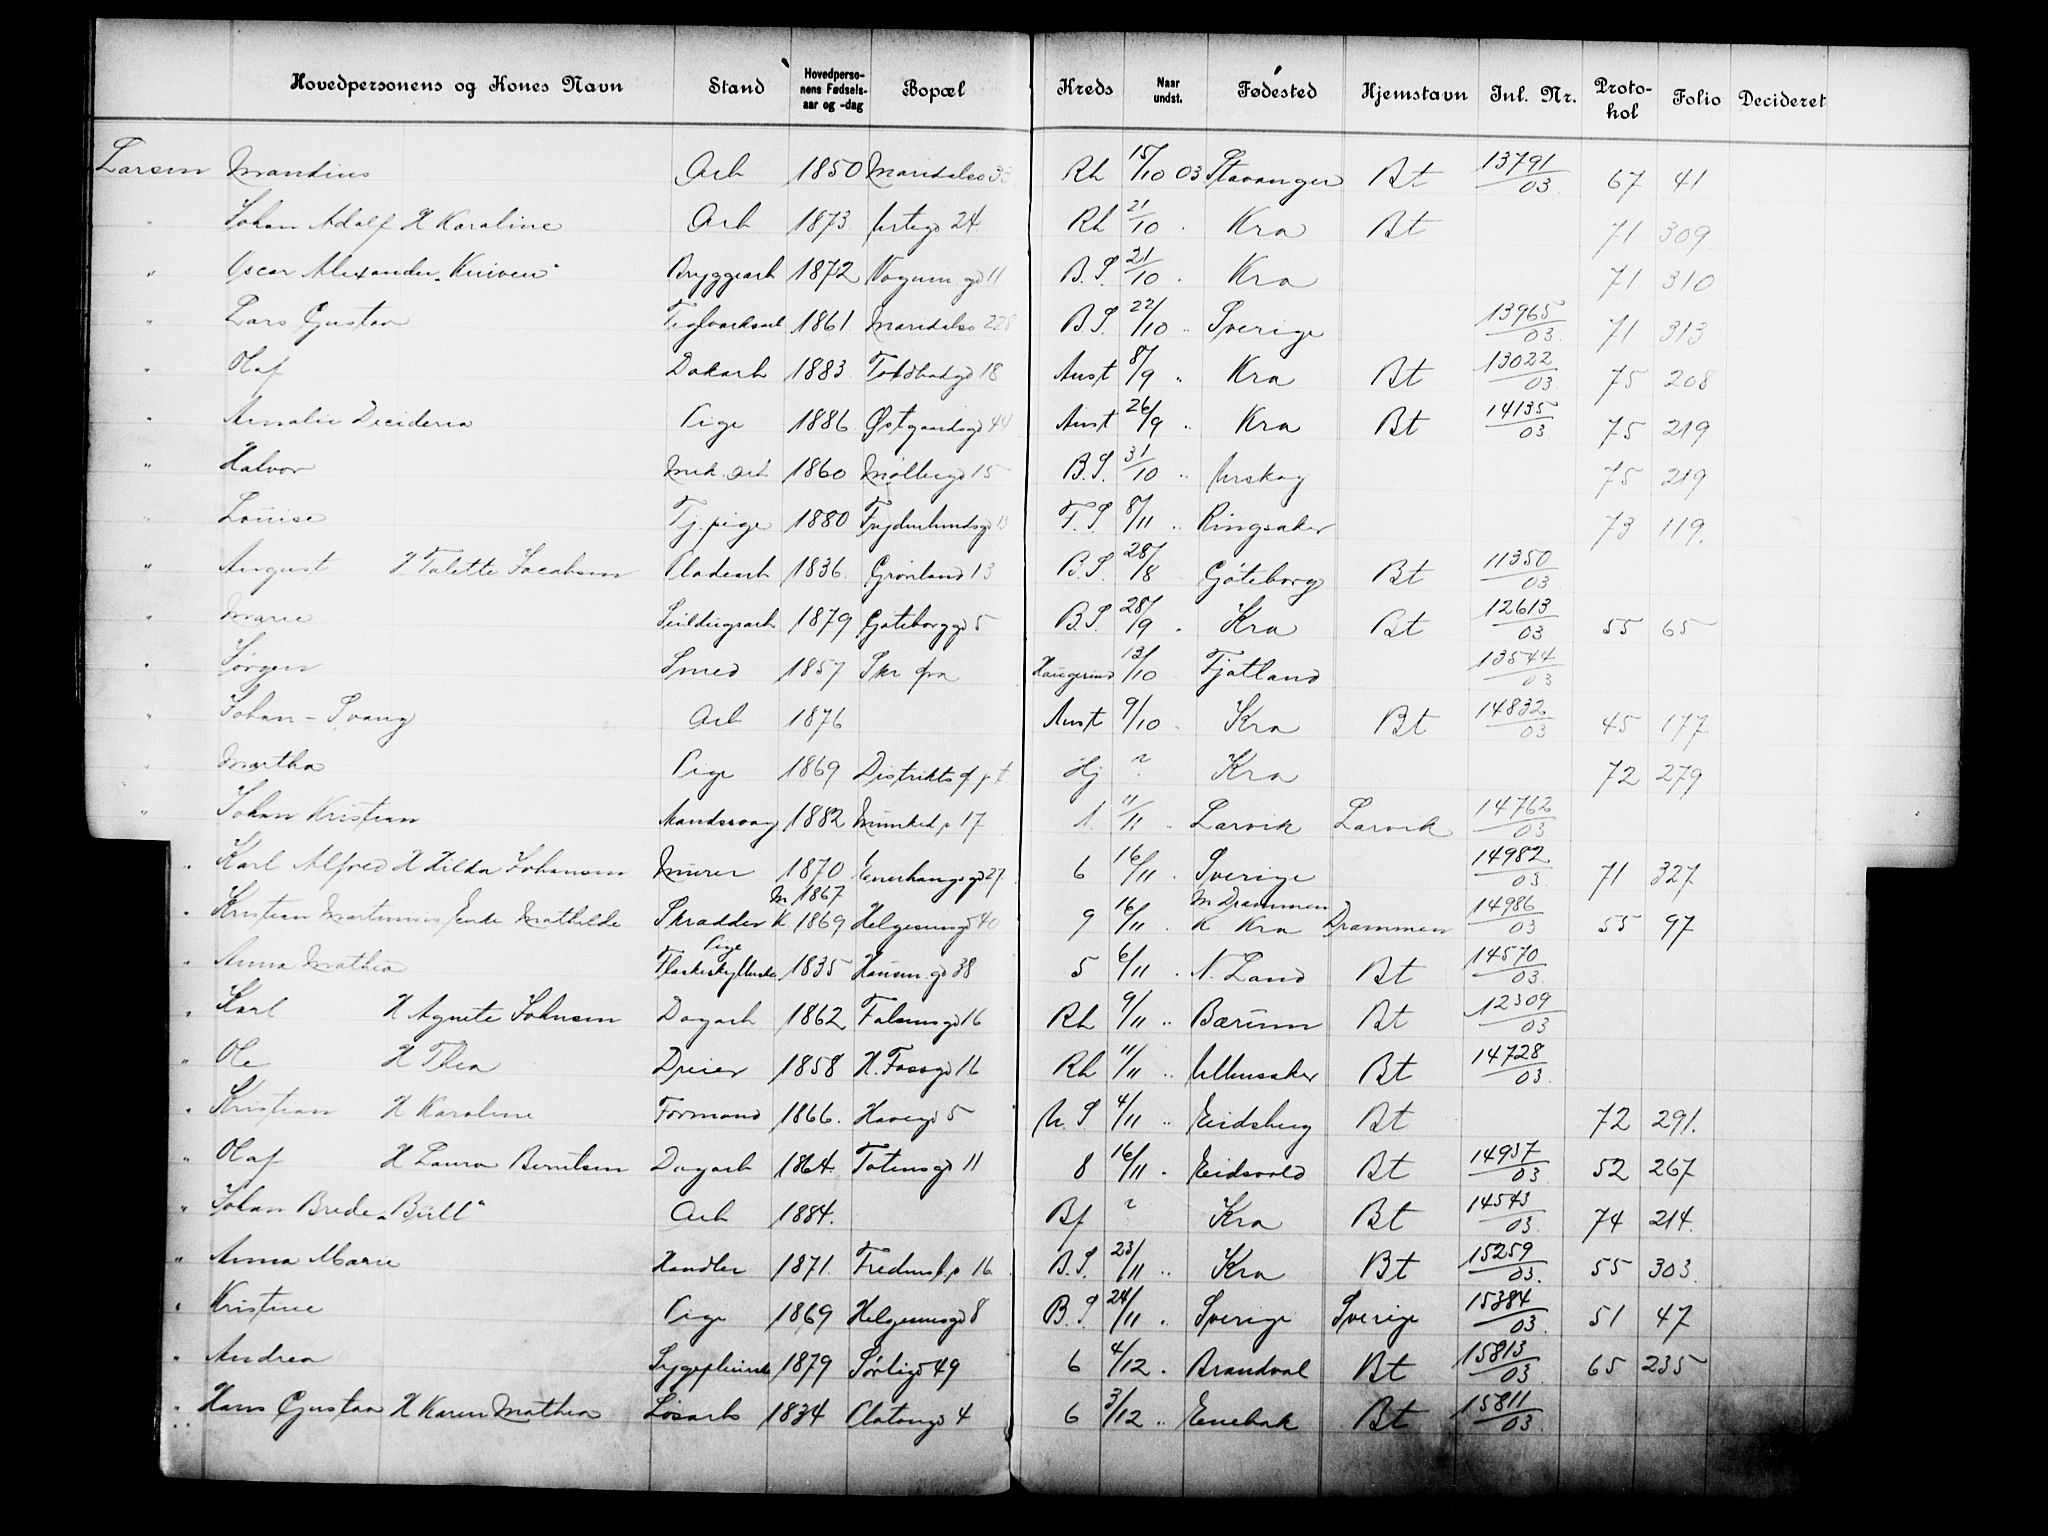 Hovedpersonens og Kones Navn Stand Hovedpersonens Fødselsaar og -dag Bopæl Kreds Naar undst. Fødested Hjemstavn Inl. Nr. Protokol Folio Decideret
Larsen Mandius Arb 1850 Maridalsv 33 Rh 15/10 03 Stavanger Bt 13791/03 67 41
" Johan Adolf H Karoline Arb 1873 24 Rh 21/10 Kra Bt 71 309
" Oscar Alexander "Kniven" Bryggearb 1872 Vognm.gd 11 B.S. 21/10 Kra 71 310
" Lars Gustav Teglværksarb 1861 Maridalsv 228 B.S. 22/10 " Sverige 13965/03 71 313
" Olaf Dokarb 1883 Toldbodgd 18 Aust 8/9 " Kra Bt 13022/03 75 208
" Amalie Decideria Pige 1886 Østgaardsgd 44 Aust 26/9 " Kra Bt 14135/03 75 219
" Halvor Mek. Arb 1860 Møllergd 15 B.S. 31/10 " Urskog 75 219
" Louise Tj.pige 1880 Frydenlundsgd 13 F.S 8/11 " Ringsaker 73 119.
" August H Talette Jacobsen Pladearb 1836. Grønland 13 B.S. 28/8 Göteborg Bt 11350/03
" Marie 1879 Gøteborggd 5 B.S. 28/9 " Kra Bt 12613/03 55 65
" Jørgen Smed 1857 Skr fra Haugesund 13/10 Fjotland 13544/03
" Johan - Svang Arb 1876 Aust 9/10 " Kra Bt 14832/03 45 177
" Martha Pige 1869 Distriktsf. p t Hj ? Kra 72 279
" Johan Kristian Mandssang 1882 Munked.p 17 1. 11/11 " Larvik Larvik 14762/03
" Karl Alfred H Hilda Johansen Murer 1870 Enerhaugsgd 27 6 16/11 " Sverige 14982/03 71 327
" Kristian Martinius, Enke Mathilde Skrædder M. 1867 K. 1869 Helgesensgd 40 9 16/11 " M Drammen K Kra Drammen 14986/03 55 97
" Anna Mathea Pige Flaskeskyllerske 1835 Hausm.gd 38 5 6/11 " N. Land Bt 14570/03
" Karl H Agnete Johnsen Dagarb 1862 Falsensgd 16 Rh 9/11 " Bærum Bt 12309/03
" Ole H Thea Dreier 1858 H. Fossgd 16 Rh 11/11 " Ullensaker Bt 14728/03
" Kristian H Karoline Formand 1866. Havegd 5 U.S 4/11 " Eidsberg Bt 72 291.
" Olaf H Laura Berntsen Dagarb 1864. Totensgd 11 8 16/11 " Eidsvold Bt 14937/03 52 267
" Johan Brede "Bull" Arb 1884. Bf ? Kra Bt 14543/03 74 214.
" Anna Marie Handler 1871. Fredensb.p 16 B.S. 23/11 " Kra Bt 15259/03. 55 303.
" Kristine Pige 1869 Helgesensgd 8 B.S 24/11 " Sverige Sverige 15384/03. 51 47
" Andrea Sygepleierske 1879 Sørligd 49 6 4/12 " Brandval Bt 15813/03. 65 235
" Hans Gustav H Karen Mathea Løsarb 1834 Platougd 4 6 3/12 " Enebak Bt 15811/03.